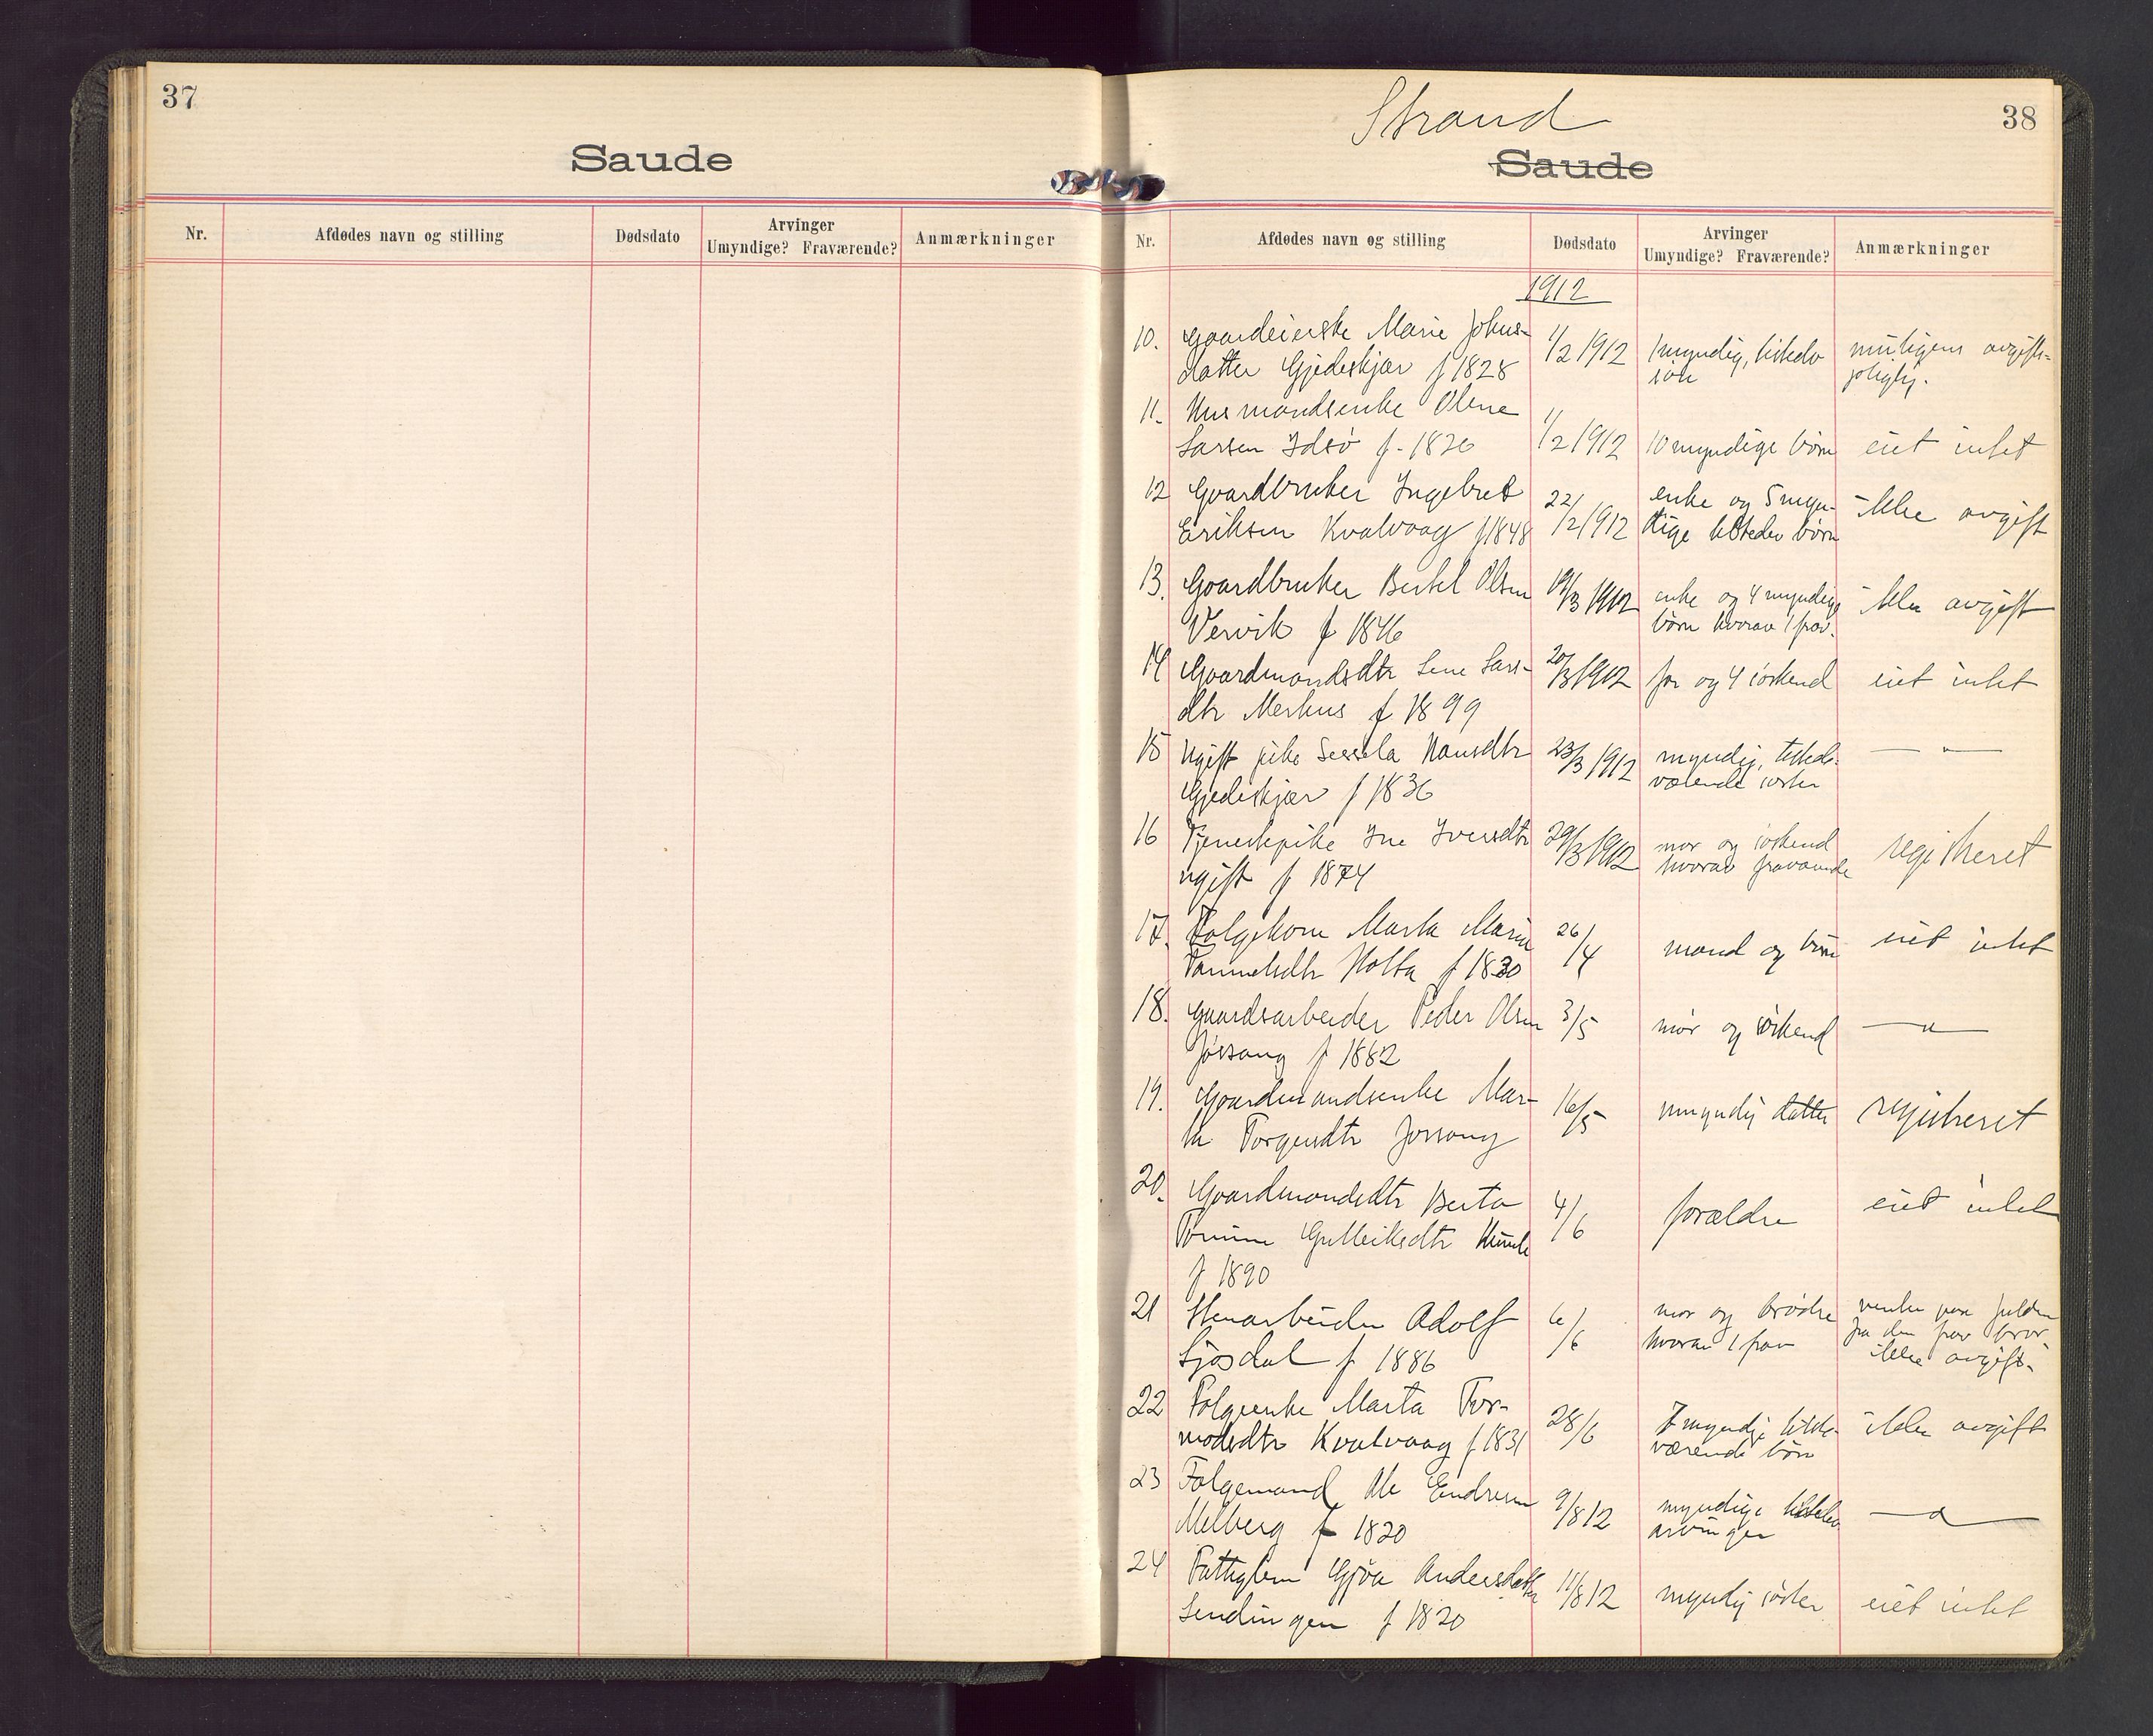 37
Saude
Nr. Afdødes navn og stilling Dødsdato Arvinger Umyndige? Fraværende? Anmærkninger
38
Strand
Saude
Nr. Afdødes navn og stilling Dødsdato Arvinger Umyndige? Fraværende? Anmærkninger
1912
10. Gaardeierske Marie Johns- 11/2 1912 1 myndig, tilstedv muligens avgifts-
datter Gjedeskjær f 1828 søn pligtig.
11. Husmandsenke Olene 11/2 1912 10 myndige børn eiet intet
Larsen Idsø f. 1826
12 Gaardbruker Ingebret 22/2 1912 enke og 5 myn- ikke avgift
Eriksen Kvalvaag f 1848 dige tilstedev børn
13. Gaardbruker Bertel Olsen 19/3 1912 enke og 4 myndige ikke avgift
Vervik f 1846 børn hvorav 1 frav.
14 Gaardmandsdtr Lars- 20/3 1912 far og 4 søskend eiet intet
dtr Merkus f 1899
15 Ugift pike Hansdtr 23/3 1912 myndig, tilstede- — " —
Gjedeskjær f 1836 værende søster
16 Tjenestepike Ine Iversdtr 29/3 1912 mor og søskend registreret
ugift f 1874 hvorav fraværende
17. Folgekone Marta Maria 26/4 mand og børn eiet intet
Holta f 1830
18. Gaardsarbeider Peder Olsen 3/5 mor og søskend — " —
Jøssang f 1882
19. Gaardmandsenke Mar- 16/5 umyndig datter registreret
ta Torgersdtr Jøssang
20. Gaardmandsdtr Berta 4/6 forældre eiet intet
Gulleiksdtr
f 1890
21 Stenarbeider Adolf 6/6 mor og brødre
hvorav 1 frav fra den frav bror.
f 1886 ikke avgift.
22 Folgeenke Marta Tor- 28/6 7 myndige tilstede- ikke avgift
modsdtr Kvalvaag f 1831 værende børn
23 Folgemand Ole Endresen 9/8 12 myndige tilstedev — " —
Melberg f 1820 arvinger
24 Fattiglem Andersdatter 11/8 12 myndig søster eiet intet
f 1820